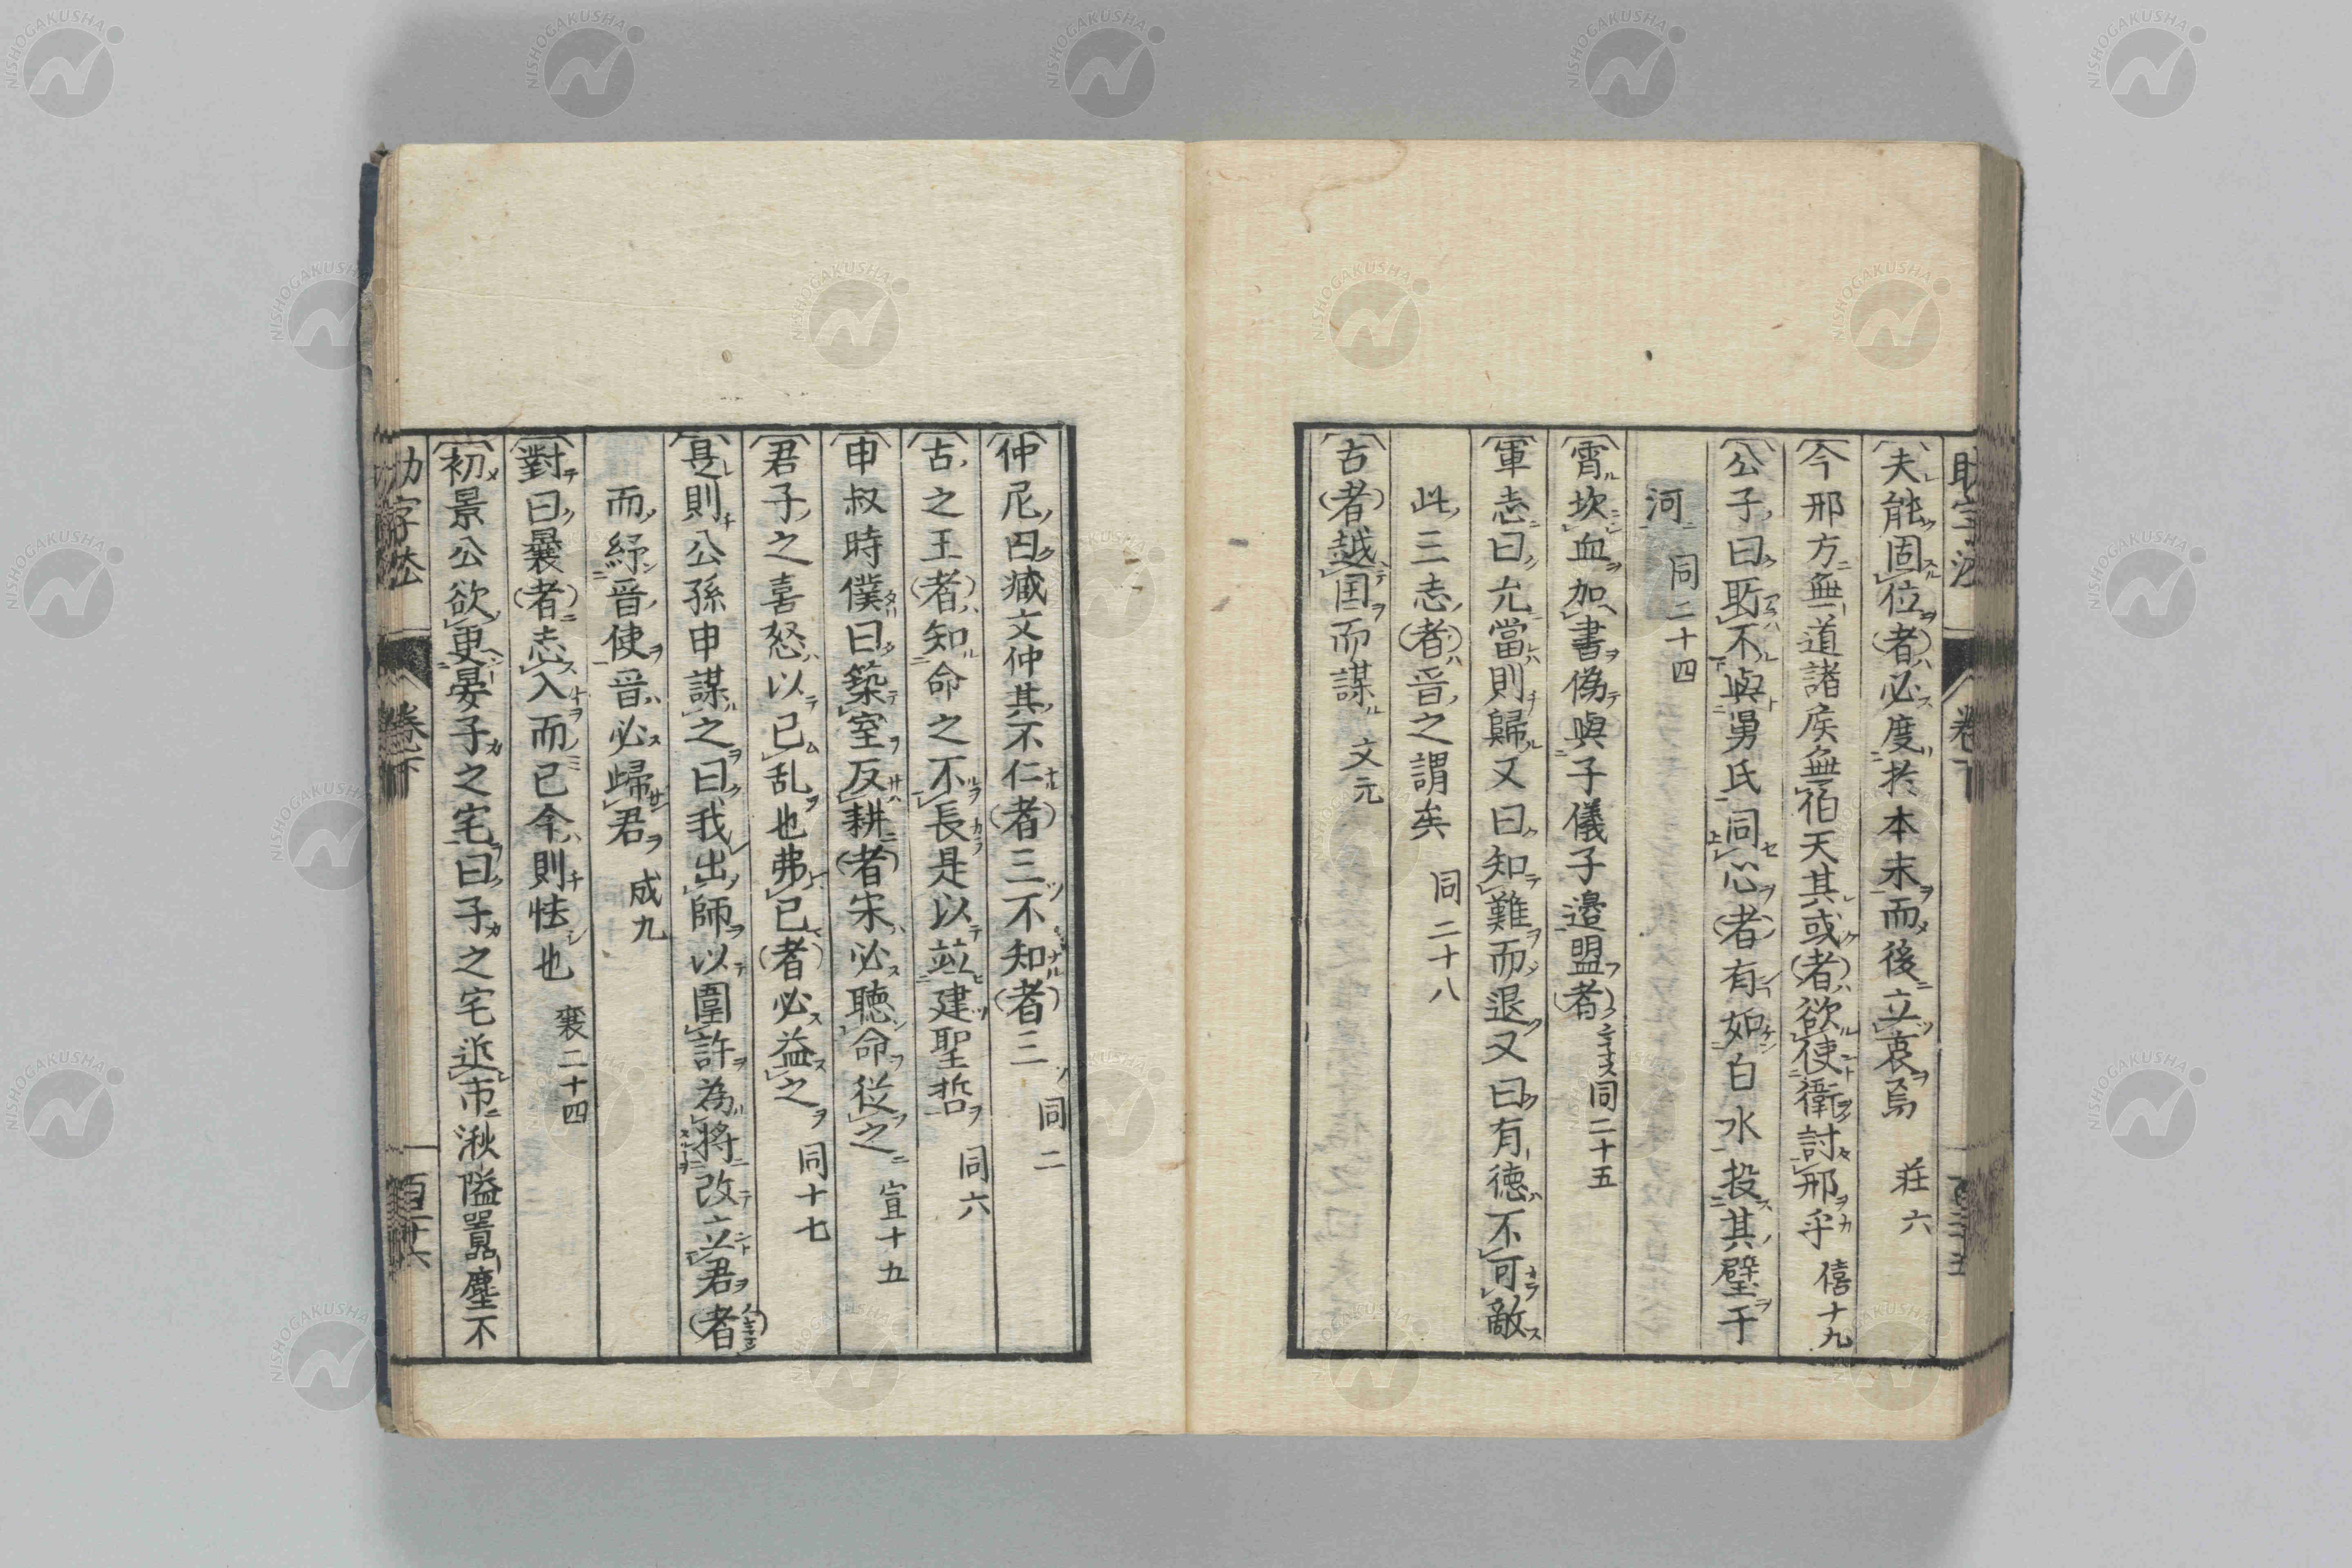 助字法 卷下 百三十五
夫能固位者必度於本末而後立衷焉 莊六
今邢方無道諸侯無伯天其或者欲使衛討邢乎 僖十九
公子曰所不與舅氏同心者有如白水投其璧于
河 同二十四
宵坎血加書偽與子儀子邊盟者 同二十五
軍志曰允當則歸又曰知難而退又曰有德不可敵
此三志者晉之謂矣 同二十八
古者越国而謀 文元
仲尼曰臧文仲其不仁者三不知者三 同二
古之王者知命之不長是以竝建聖哲 同六
申叔時僕曰築室反耕者宋必聽命從之 宣十五
君子之喜怒以已乱也弗已者必益之 同十七
是則公孫申謀之曰我出師以圍許為將改立君者
而紓晉使晉必歸君 成九
對曰曩者志入而已今則怯也 襄二十四
初景公欲更晏子之宅曰子之宅近市湫隘囂塵不
助字法 卷下 百三十六
NISHOGAKUSHA